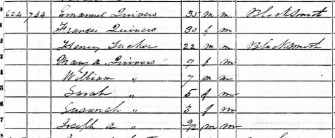 624,734 Emanuel Quivers 35 m m Blacksmith
Frances Quivers 30 f m
Henry Tucker 22 m m Blacksmith
Mary A. Quivers 9 f m
William " 7 m m
Sarah " 5 f m
" 3 f m
Joseph " 2/12 m m